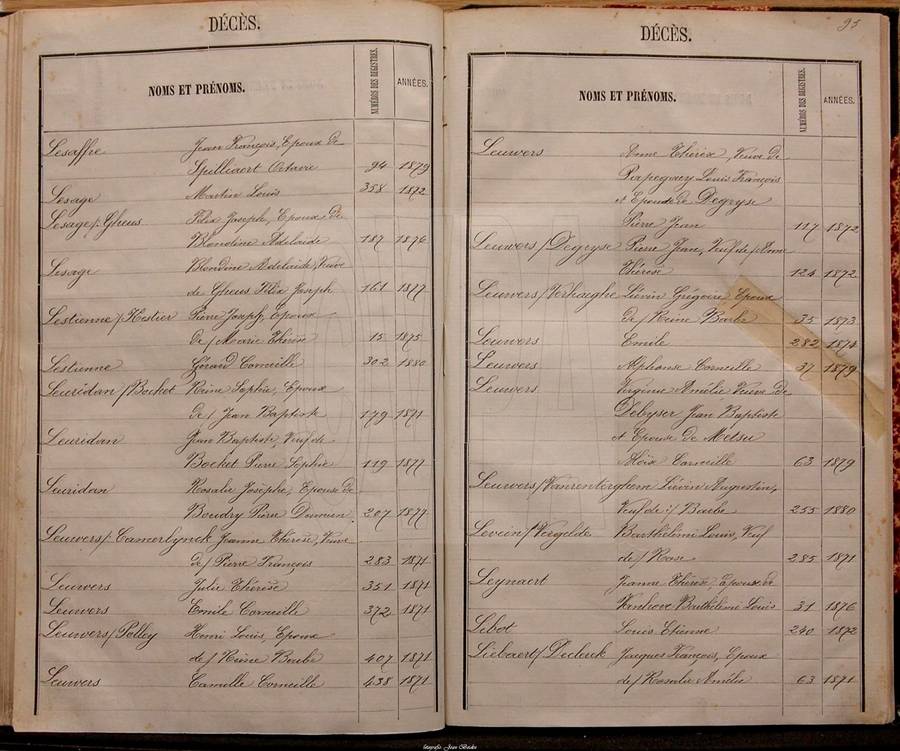 DÉCÈS.
NOMS ET PRÉNOMS. NUMÉROS DES REGISTRES. ANNÉES.
Lesaffre Jean François, Epoux de
Spilliaert Octavie 94 1879
Lesage Martin Louis 358 1872
Lesage/Gheus Félix Joseph, Epoux de
Blondine Adelaïde 187 1876
Lesage Blondine Adelaïde, Veuve
de Gheus Félix Joseph 161 1877
Lestienne/Hestier Pierre Joseph, Epoux
de/ Marie Thérèse 15 1875
Lestienne Gérard Corneille 302 1880
Leuridan/Bochet Reine Sophie, Epoux
de/ Jean Baptiste 179 1871
Leuridan Jean Baptiste, Veuf de
Bochet Pierre Sophie 119 1877
Leuridan Rosalie Josèphe, Epouse de
Boudry Pierre 207 1877
Leuwers/Camerlynck Jeanne Thérèse, Veuve
de/ Pierre François 283 1871
Leuwers Julie Thérèse 351 1871
Leuwers Emile Corneille 372 1871
Leuwers/Polley Henri Louis, Epoux
de/ Reine Barbe 407 1871
Leuwers Camille Corneille 438 1871
93
DÉCÈS.
NOMS ET PRÉNOMS. NUMÉROS DES REGISTRES. ANNÉES.
Leuwers Anne Thérèse, Veuve de
Louis François
et Epouse de Degryse
Pierre Jean 117 1872
Leuwers/Degryse Pierre Jean, Veuf de/ Anne
Thérèse 124 1872
Leuwers/Verhaeghe Liévin Grégoire Epoux
de/ Reine Barbe 35 1873
Leuwers Emile 282 1874
Leuwers Alphonse Corneille 37 1879
Leuwers Virginie Amélie Veuve de
Debyser Jean Baptiste
et Epouse de Metsu
Aloïx Corneille 63 1879
Leuwers/Vanrenterghem Liévin Augustin,
Veuf de :/ Barbe 255 1880
Levein/Vergelde Barthélémi Louis, Veuf
de/ Rose 285 1871
Leynaert Jeanne Thérèse, Epouse de
Vanhove Barthélémi Louis 31 1876
Libot Louis Etienne 240 1872
Liebaert/Declerck Jacques François, Epoux
de/ Rosalie Amélie 63 1871